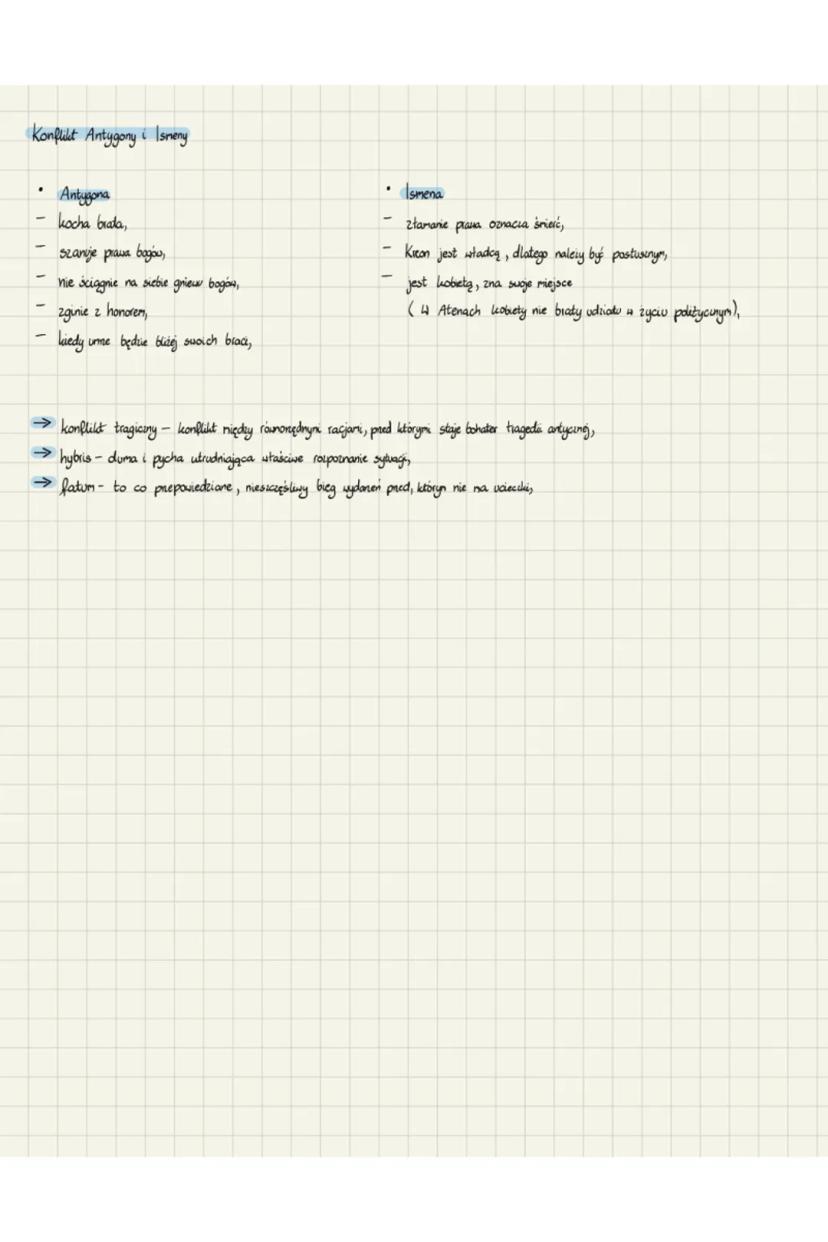 Konflikt Antygony i Ismeny
• Antygona
– kocha brata,
– szanuje prawa bogów,
– nie ściągnie na siebie gniewu bogów,
– zginie z honorem,
– kiedy umrze będzie bliżej swoich braci,
• Ismena
– złamanie prawa oznacza śmierć,
– Kreon jest władcą, dlatego należy być posłusznym,
– jest kobietą, zna swoje miejsce
( W Atenach kobiety nie brały udziału w życiu politycznym),
→ konflikt tragiczny – konflikt między równorzędnymi racjami, przed którymi staje bohater tragedii antycznej,
→ hybris – duma i pycha utrudniająca właściwe rozpoznanie sytuacji,
→ fatum – to co przepowiedziane, nieszczęśliwy bieg wydarzeń przed, którym nie ma ucieczki,